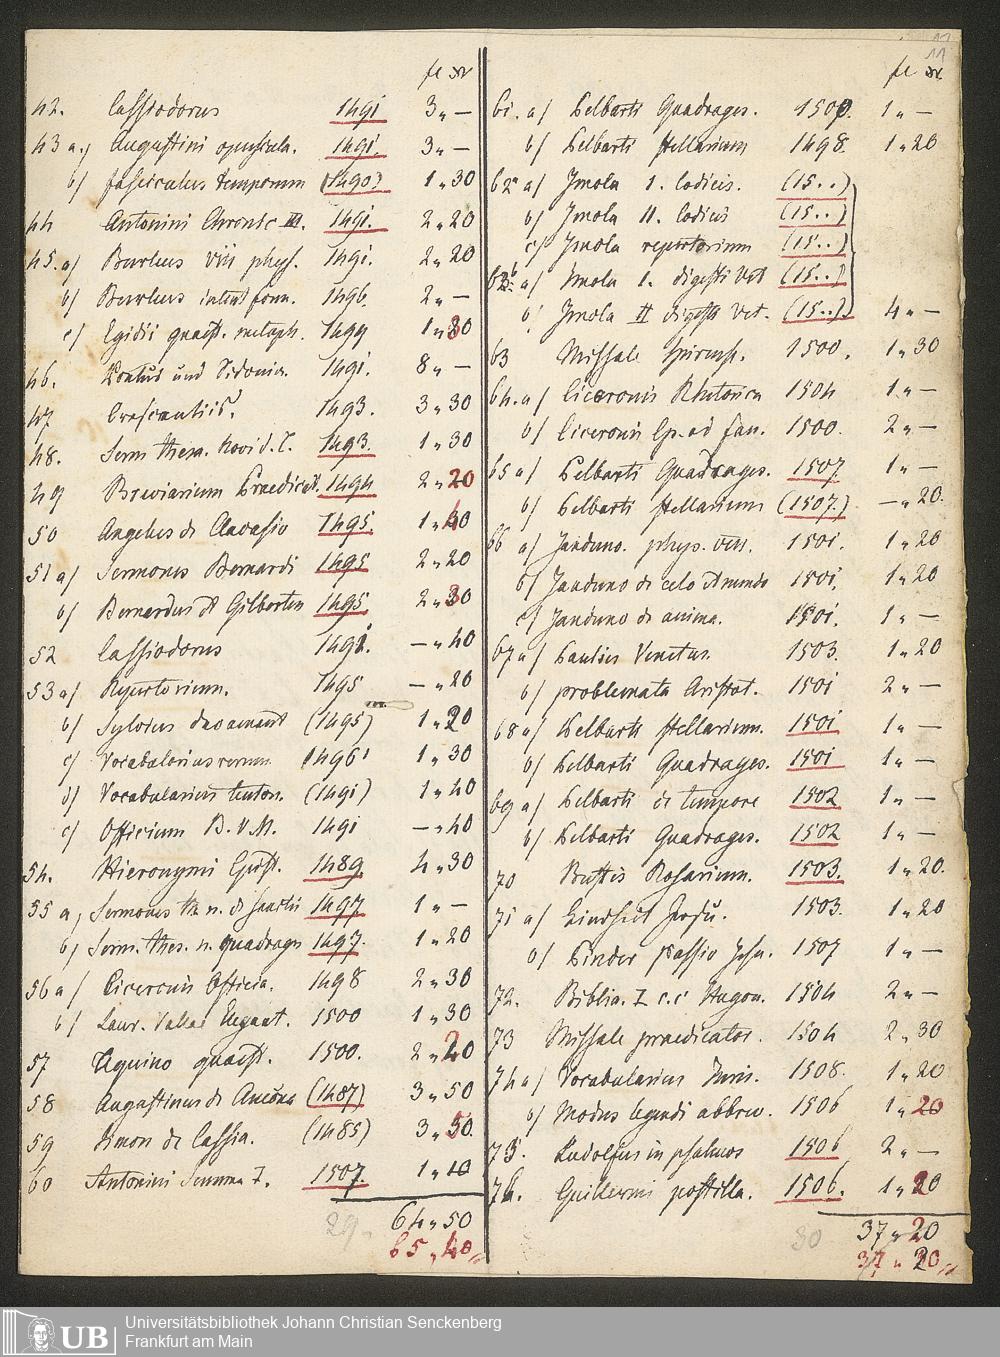 11
fl xr
42. Cassiodorus 1491 3 „ —
43 a) Augustini opuscula. 1491. 3 „ —
b) fasciculus temporum (1490? 1 „ 30
44 Antonini Chronic III. 1491. 2 „ 20
45. a) Burleus VIII phys. 1491. 2 „ 20
b) Burleus form. 1496. 2 „ —
c) Egidii quaest. metaph. 1499
46. und Sidonia. 1491. 8 „ —
47 1493. 3 „ 30
48. Serm thesa. novi d. T. 1493. 1 „ 30
49 Breviarium Praedicat. 1494 2 „ 20
50 Angelus de Clavasio 1495.
51 a) Sermones Bernardi 1495 2 „ 20
b) Bernardus et Gilbertus 1495.
52 Cassiodorus 1491. — „ 40
53 a) Repertorium. 1495 — „ 20
b) Sylvius (1495) 1 „ 20
c) Vocabularius rerum 1496 1 „ 30
d) Vocabularius teuton. (1491) 1 „ 40
e) Officium B.V.M. 1491 — „ 40
54. Hieronymi Epist. 1489. 4 „ 30
55 a) Sermones th n. d sanctis 1497 1 „ —
b) Serm. thes. n. quadrages 1497. 1 „ 20
56 a) Ciceronis Officia. 1498 2 „ 30
b) Laur. Vallae Elegant. 1500 1 „ 30
57 Aquino quaest. 1500. 2 „ 20
58 Augustinus de Ancona (1487) 3 „ 50
59 Simon de Cassia. (1485) 3 „ 50.
60 Antonini Summa I. 1507. 1 „ 10
29. 64 „ 50
65 „ 40 „
fl xr
61. a) Pelbarti Quadrages. 1500. 1 „ —
b) Pelbarti stellarium 1498. 1 „ 20
62a a) Jmola I. Codicis. (15..)
b) Jmola II. Codicis (15..)
c) Jmola repertorium (15..)
62b. a) Jmola I. digesti Vet (15..)
b) Jmola II digesti Vet. (15..) 4 „ —
63 Missale Spirense. 1500. 1 „ 30
64. a) Ciceronis Rhetorica 1504 1 „ —
b) Ciceronis Ep. ad fam. 1500. 2 „ —
65 a) Pelbarti Quadrages. 1507 1 „ —
b) Pelbarti stellarium (1507.) — „ 20.
66 a) Janduno. phys. VIII. 1501. 1 „ 20
b) Janduno de celo et mundo 1501. 1 „ 20
c) Janduno de anima. 1501. 1 „ —
67 a) Paulus Venetus. 1503. 1 „ 20
b) problemata Aristot. 1501 2 „ —
68 a) Pelbarti stellarium. 1501 1 „ —
b) Pelbarti Quadrages. 1501 1 „ —
69 a) Pelbarti de tempore 1502 1 „ —
b) Pelbarti Quadrages. 1502 1 „ —
70 Bustis Rosarium. 1503. 1 „ 20.
71 a) Kindheit Jesu. 1503. 1 „ 20
b) Pinder passio Jesu. 1507 1 „ —
72. Biblia. I c. c Hugon. 1504 2 „ —
73 Missale praedicator. 1504 2 „ 30
74 a) Vocabularius Juris. 1508. 1 „ 20
b) Modus legendi abbrev. 1506 1 „ 20
75. Ludolfus in psalmos 1506 2 „ —
76. Guillermi postilla. 1506. 1 „ 20
30 37 „ 20
37 „ 20 „
UB Universitätsbibliothek Johann Christian Senckenberg
Frankfurt am Main